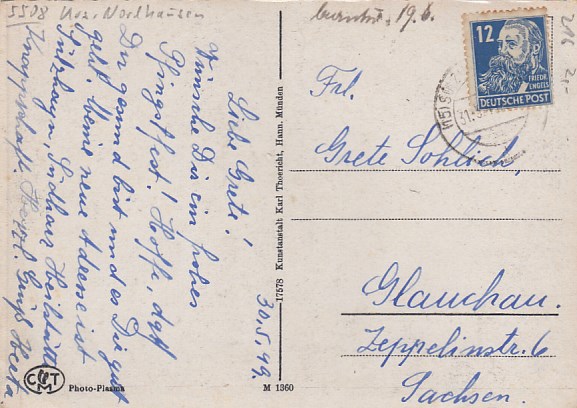 5508 Krs. Nordhausen
30.5.49.
Liebe Grete!
Wünsche Dir ein frohes
Pfingstfest! Hoffe, daß
Du gesund bist und es Dir gut
geht. Meine neue Adresse ist
Sülzhayn, Südharz Heilstätte
Knappschafts
Herzl. Gruß Herta
Photo-Plasma
M 1360
17578 Kunstanstalt Karl Thoericht, Hann. Münden
19.6.
12
FRIEDR. ENGELS
DEUTSCHE POST
216
Frl.
Grete Sohlich,
Glauchau.
Zeppelinstr. 6
Sachsen.